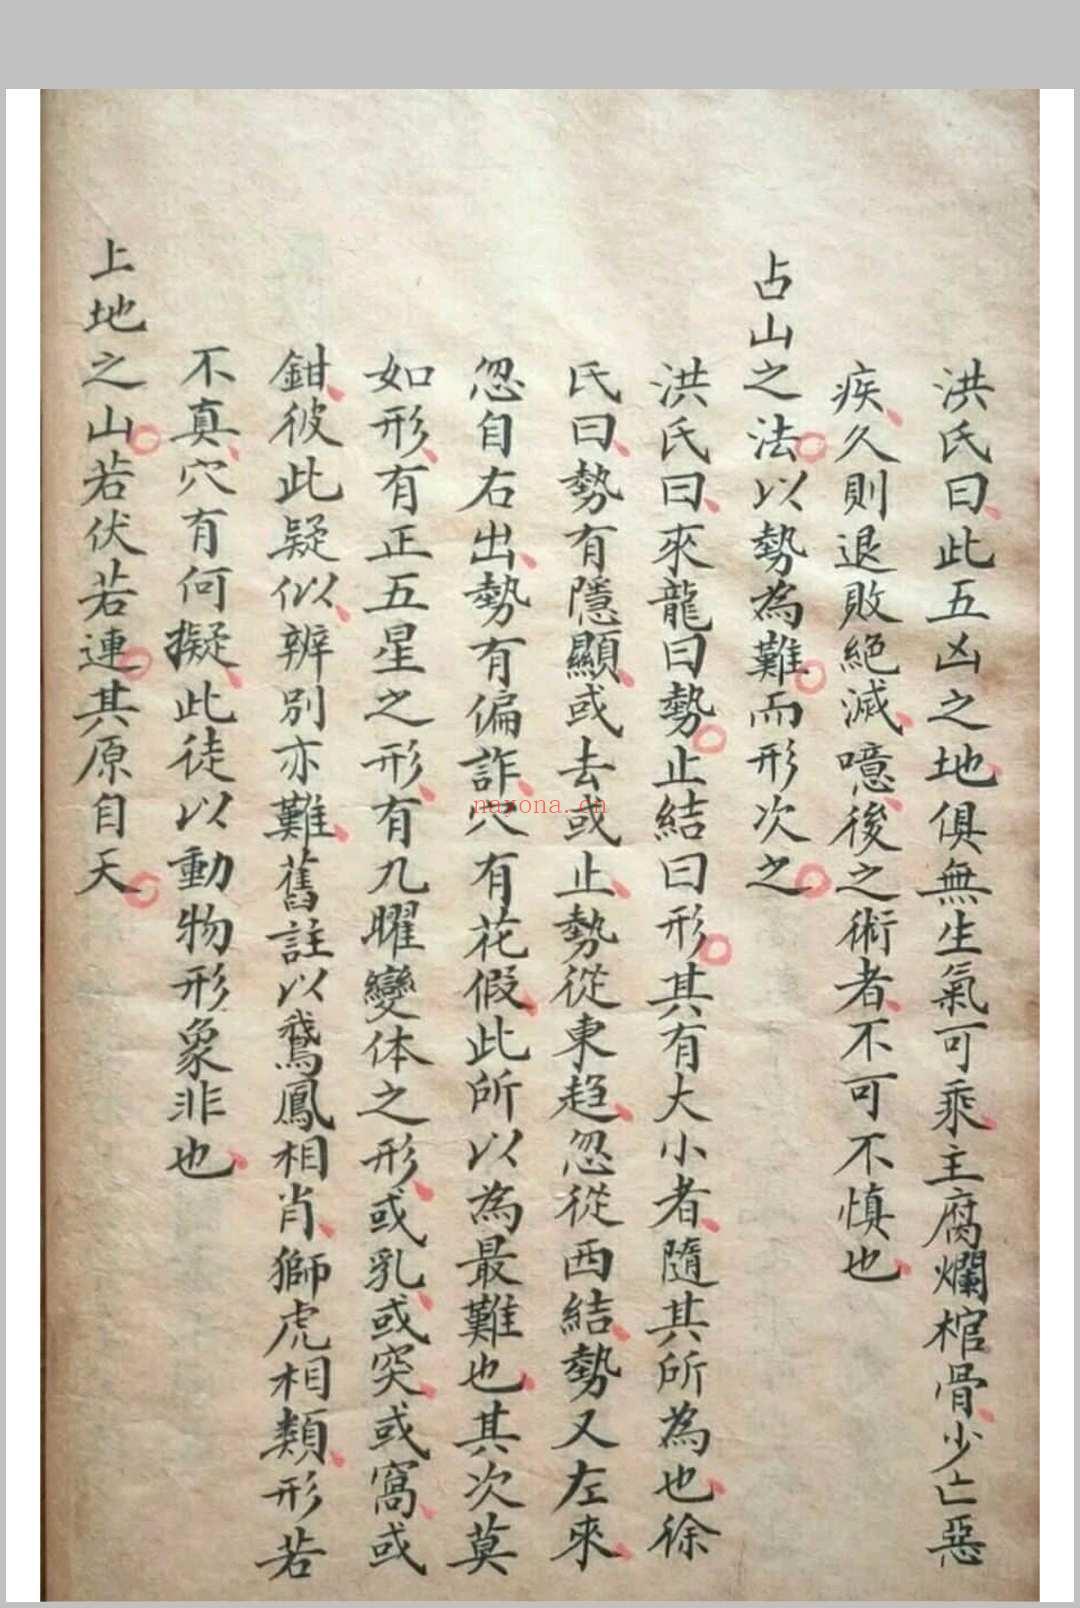 洪氏曰此五凶之地俱無生氣可乘主腐爛棺骨少亡惡
疾久則退敗絕滅噫後之術者不可不慎也
占山之法以勢為難而形次之
洪氏曰來龍曰勢止結曰形其有大小者隨其所為也徐
氏曰勢有隱顯或去或止勢從東趋忽從西結勢又左來
忽自右出勢有偏詐穴有花假此所以為最難也其次莫
如形有正五星之形有九曜變体之形或乳或突或窩或
鉗彼此疑似辨別亦難舊註以鵞鳳相肖獅虎相類形若
不真穴有何擬此徒以動物形象非也
上地之山若伏若連其原自天
nayona.cn